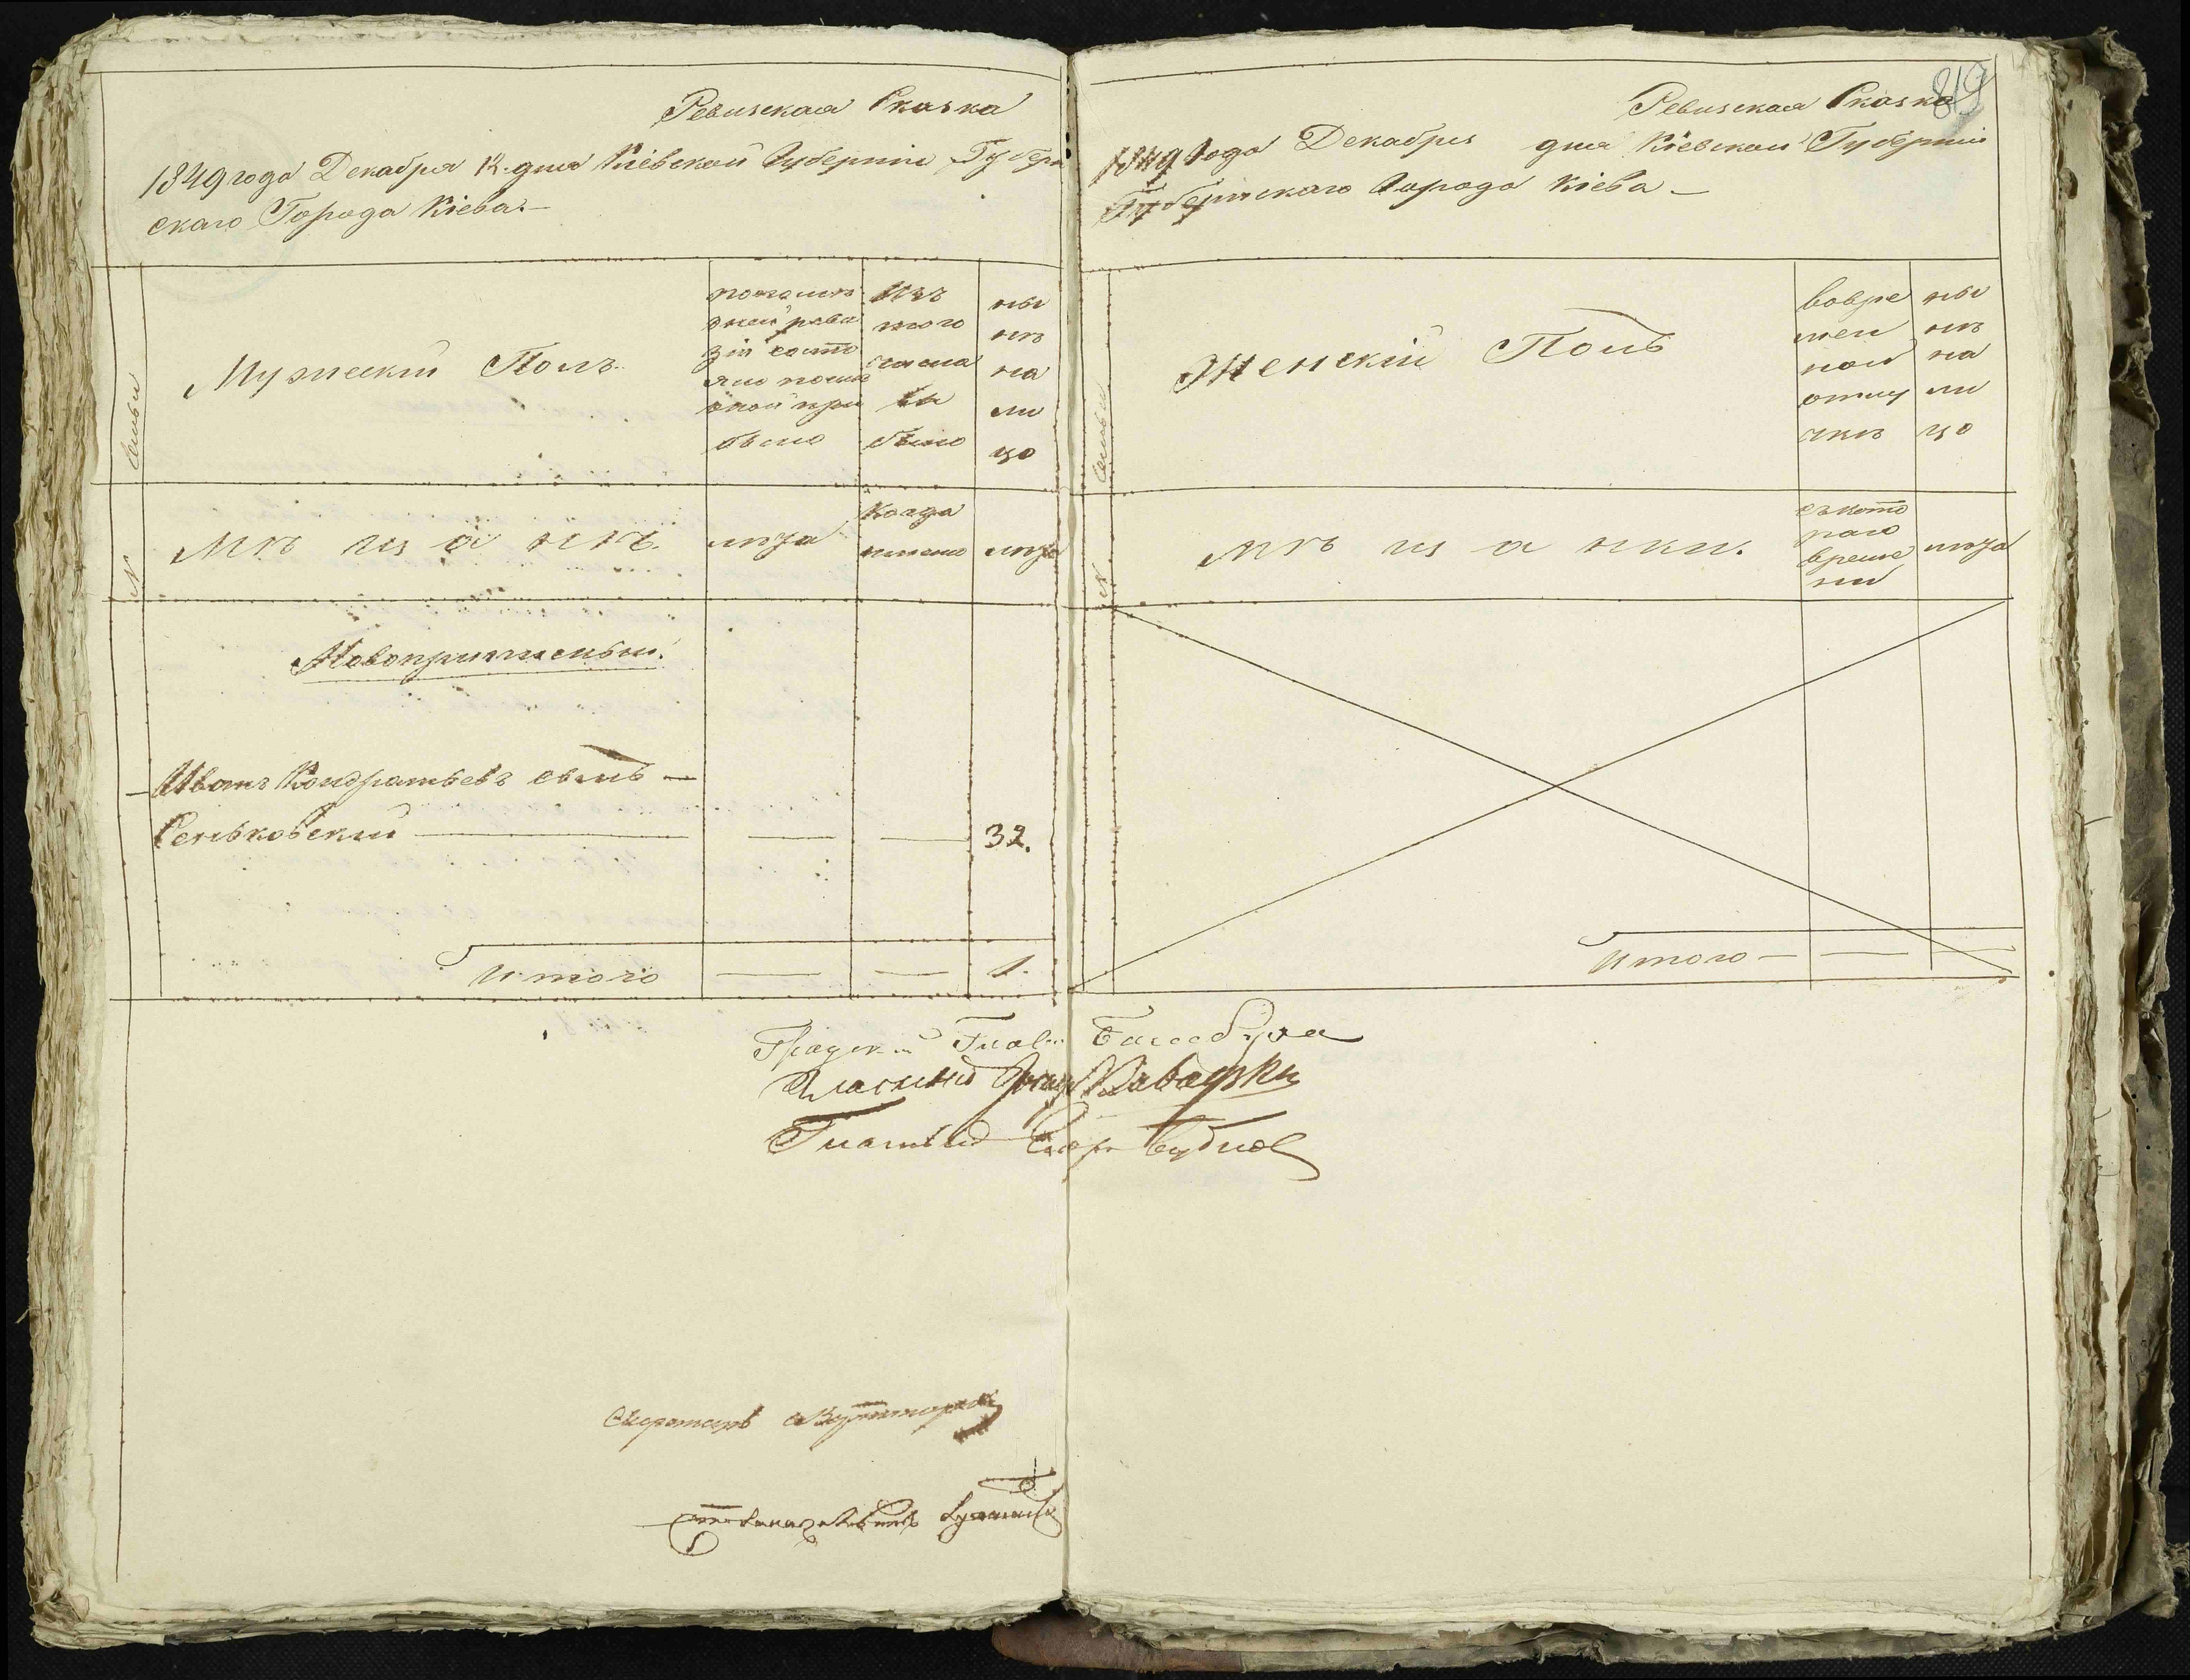 Ревизская Сказка
1849 года Декабря 12. дня Кіевской Губерніи Губерн
скаго Города Кіева.—
Семьи
Мужескій Полъ.
по послѣ
дней реви
зіи состо
яло и послѣ
оной при
было
Изъ
того
числа
вы
было
ны
нѣ
на
ли
цо
№
Мѣщанѣ.
лѣта
Когда
именно
лѣта
Новоприписныи.
— Иванъ Кондратьевъ сынъ —
Сеньковскій — — — 32.
Итого — — 1.
819
Ревизская Сказка
1849 Года Декабря дня Кіевской Губерніи
Губернскаго Города Кіева —
Семьи
Женскій Полъ
вовре
мен
ной
отлу
чкѣ
ны
нѣ
на
ли
цо
№
Мѣщанки.
съ кото
раго
време
ни
лѣта
Итого — — —
Градскій Глава
Гласный
Гласный
Секретарь